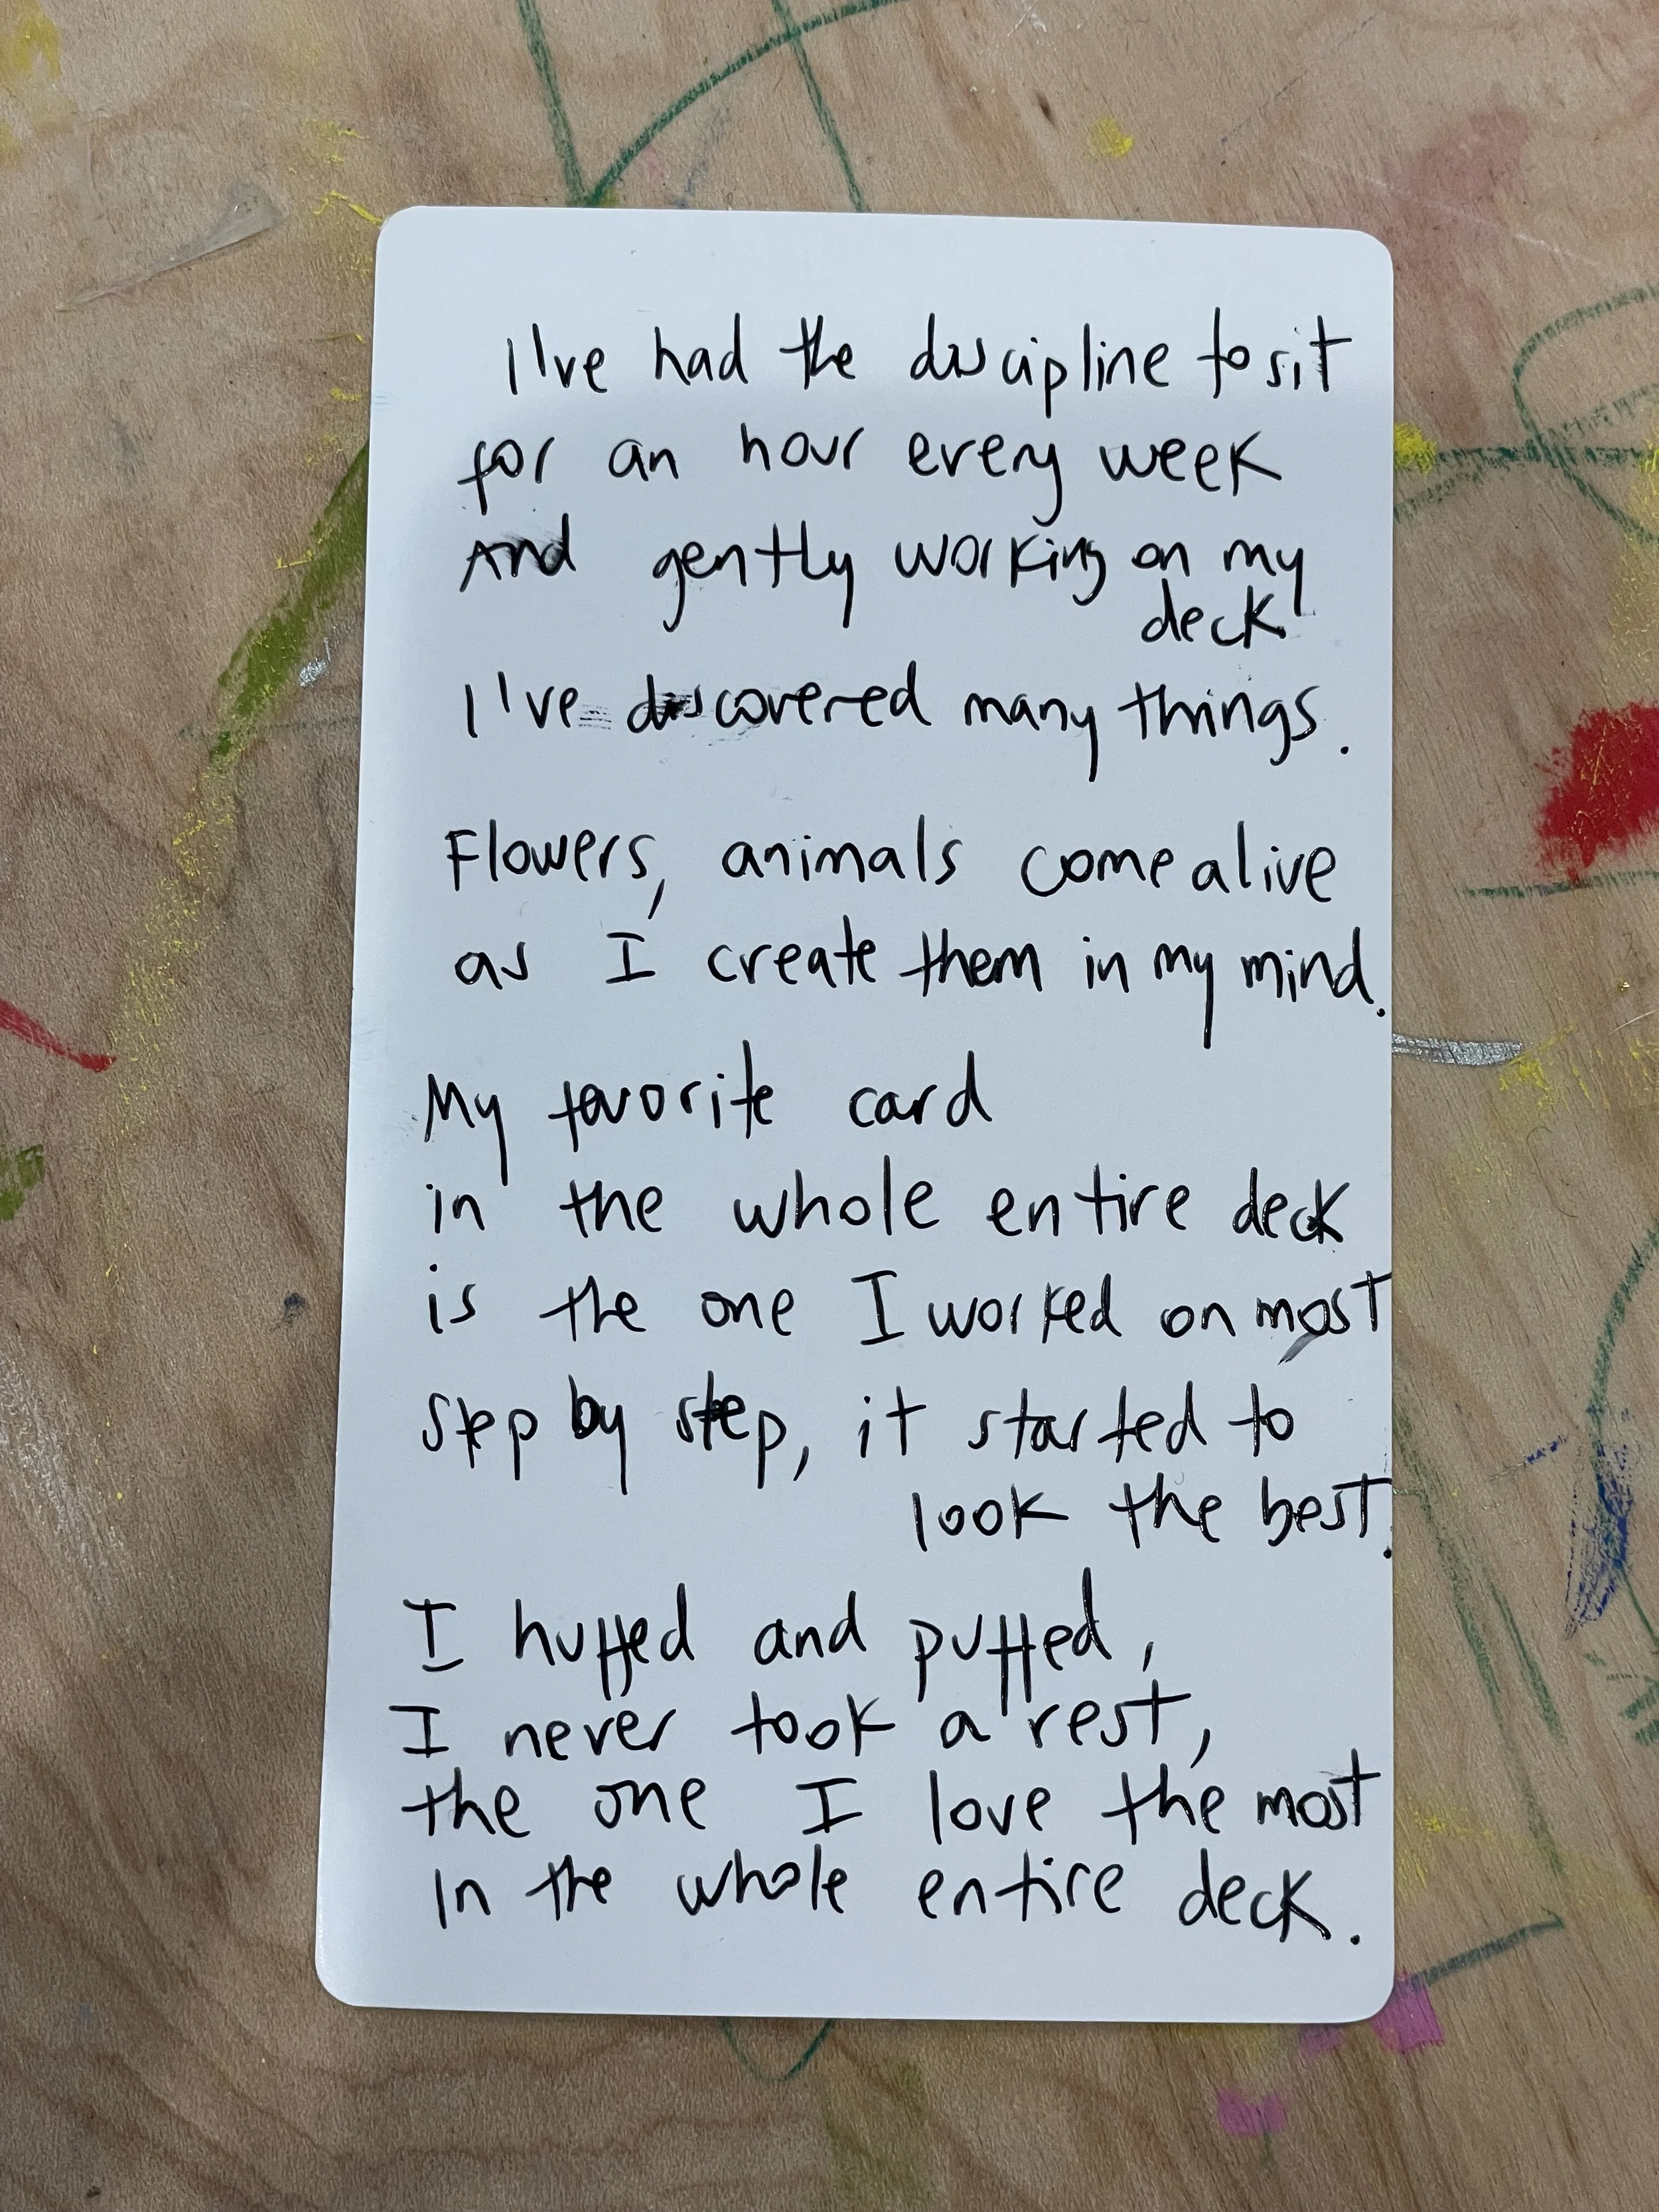 I've had the discipline to sit
for an hour every week
And gently working on my
deck
I've discovered many things.
Flowers, animals come alive
as I create them in my mind.
My favorite card
in the whole entire deck
is the one I worked on most
step by step, it started to
look the best.
I huffed and puffed,
I never took a rest,
the one I love the most
In the whole entire deck.